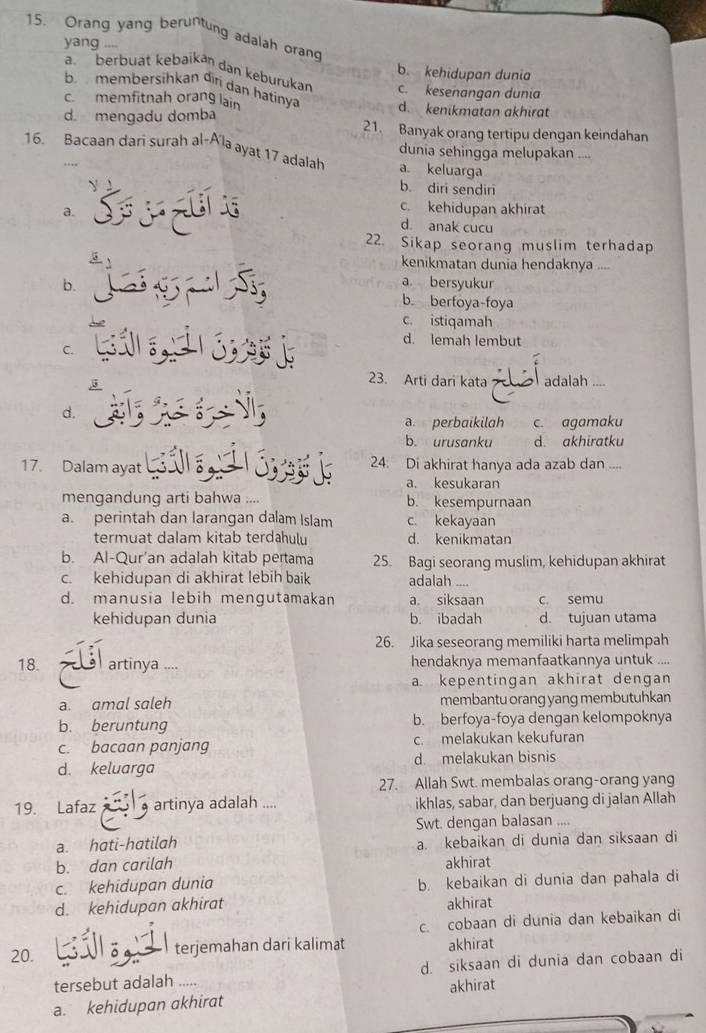 15. Orang yang beruntung adalah orang
yang ....
a. berbuat kebaikan dan keburukan
b. membersihkan diri dan hatinya
c. memfitnah orang lain
d. mengadu domba
16. Bacaan dari surah al-A'la ayat 17 adalah
....
a. قَدْ أَفْلَحَ مَنْ تَزَكّٰى
b. وَذَكَرَ اسْمَ رَبِّهٖ فَصَلّٰى
c. بَلْ تُؤْثِرُوْنَ الْحَيٰوةَ الدُّنْيَا
d. وَالْاٰخِرَةُ خَيْرٌ وَّاَبْقٰى
17. Dalam ayat بَلْ تُؤْثِرُوْنَ الْحَيٰوةَ الدُّنْيَا
mengandung arti bahwa ....
a. perintah dan larangan dalam Islam
termuat dalam kitab terdahulu
b. Al-Qur'an adalah kitab pertama
c. kehidupan di akhirat lebih baik
d. manusia lebih mengutamakan
kehidupan dunia
18. أَفْلَحَ artinya ....
a. amal saleh
b. beruntung
c. bacaan panjang
d. keluarga
19. Lafaz وَابْتَغِ artinya adalah ....
a. hati-hatilah
b. dan carilah
c. kehidupan dunia
d. kehidupan akhirat
20. الْحَيٰوةَ الدُّنْيَا terjemahan dari kalimat
tersebut adalah .....
a. kehidupan akhirat
b. kehidupan dunia
c. kesenangan dunia
d. kenikmatan akhirat
21. Banyak orang tertipu dengan keindahan
dunia sehingga melupakan ....
a. keluarga
b. diri sendiri
c. kehidupan akhirat
d. anak cucu
22. Sikap seorang muslim terhadap
kenikmatan dunia hendaknya ....
a. bersyukur
b. berfoya-foya
c. istiqamah
d. lemah lembut
23. Arti dari kata أَصْلِحْ adalah ....
a. perbaikilah c. agamaku
b. urusanku d. akhiratku
24. Di akhirat hanya ada azab dan ....
a. kesukaran
b. kesempurnaan
c. kekayaan
d. kenikmatan
25. Bagi seorang muslim, kehidupan akhirat
adalah ....
a. siksaan c. semu
b. ibadah d. tujuan utama
26. Jika seseorang memiliki harta melimpah
hendaknya memanfaatkannya untuk ....
a. kepentingan akhirat dengan
membantu orang yang membutuhkan
b. berfoya-foya dengan kelompoknya
c. melakukan kekufuran
d. melakukan bisnis
27. Allah Swt. membalas orang-orang yang
ikhlas, sabar, dan berjuang di jalan Allah
Swt. dengan balasan ....
a. kebaikan di dunia dan siksaan di
akhirat
b. kebaikan di dunia dan pahala di
akhirat
c. cobaan di dunia dan kebaikan di
akhirat
d. siksaan di dunia dan cobaan di
akhirat